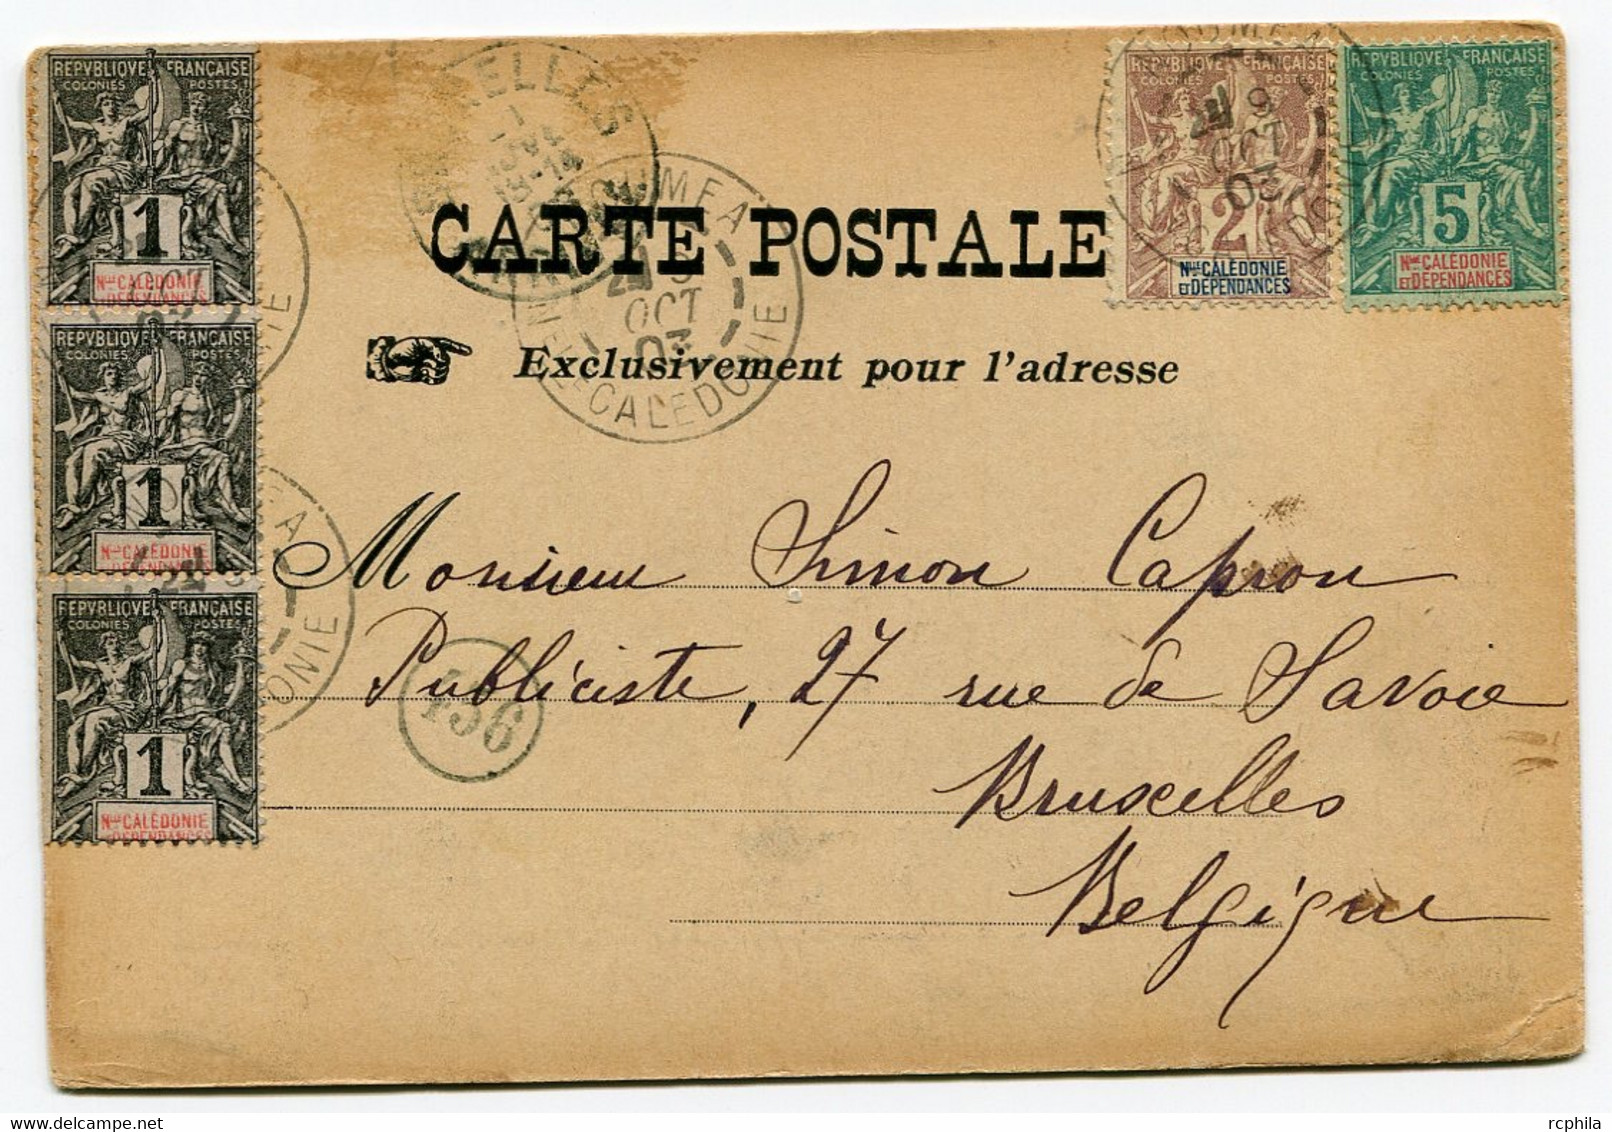 REPVBLIQVE FRANÇAISE
COLONIES POSTES
1
Nlle CALÉDONIE
ET DÉPENDANCES
REPVBLIQVE FRANÇAISE
COLONIES POSTES
1
Nlle CALÉDONIE
REPVBLIQVE FRANÇAISE
COLONIES POSTES
1
Nlle CALÉDONIE
REPVBLIQVE FRANÇAISE
COLONIES POSTES
2
Nlle CALÉDONIE
ET DÉPENDANCES
REPVBLIQVE FRANÇAISE
COLONIES POSTES
5
Nlle CALÉDONIE
ET DÉPENDANCES
9
OCT
03
OCT
03
CALEDONIE
CARTE POSTALE
Exclusivement pour l'adresse
Monsieur Simon Capron
Publiciste, 27 rue de Savoie
Bruxelles
Belgique
456
rcphila